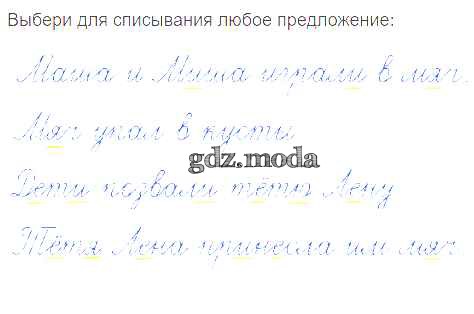 Выбери для списывания любое предложение:
Маша и Миша играли в мяч.
Мяч упал в кусты.
gdz.moda
Дети позвали тётю Лену
Тётя Лена принесла им мяч.